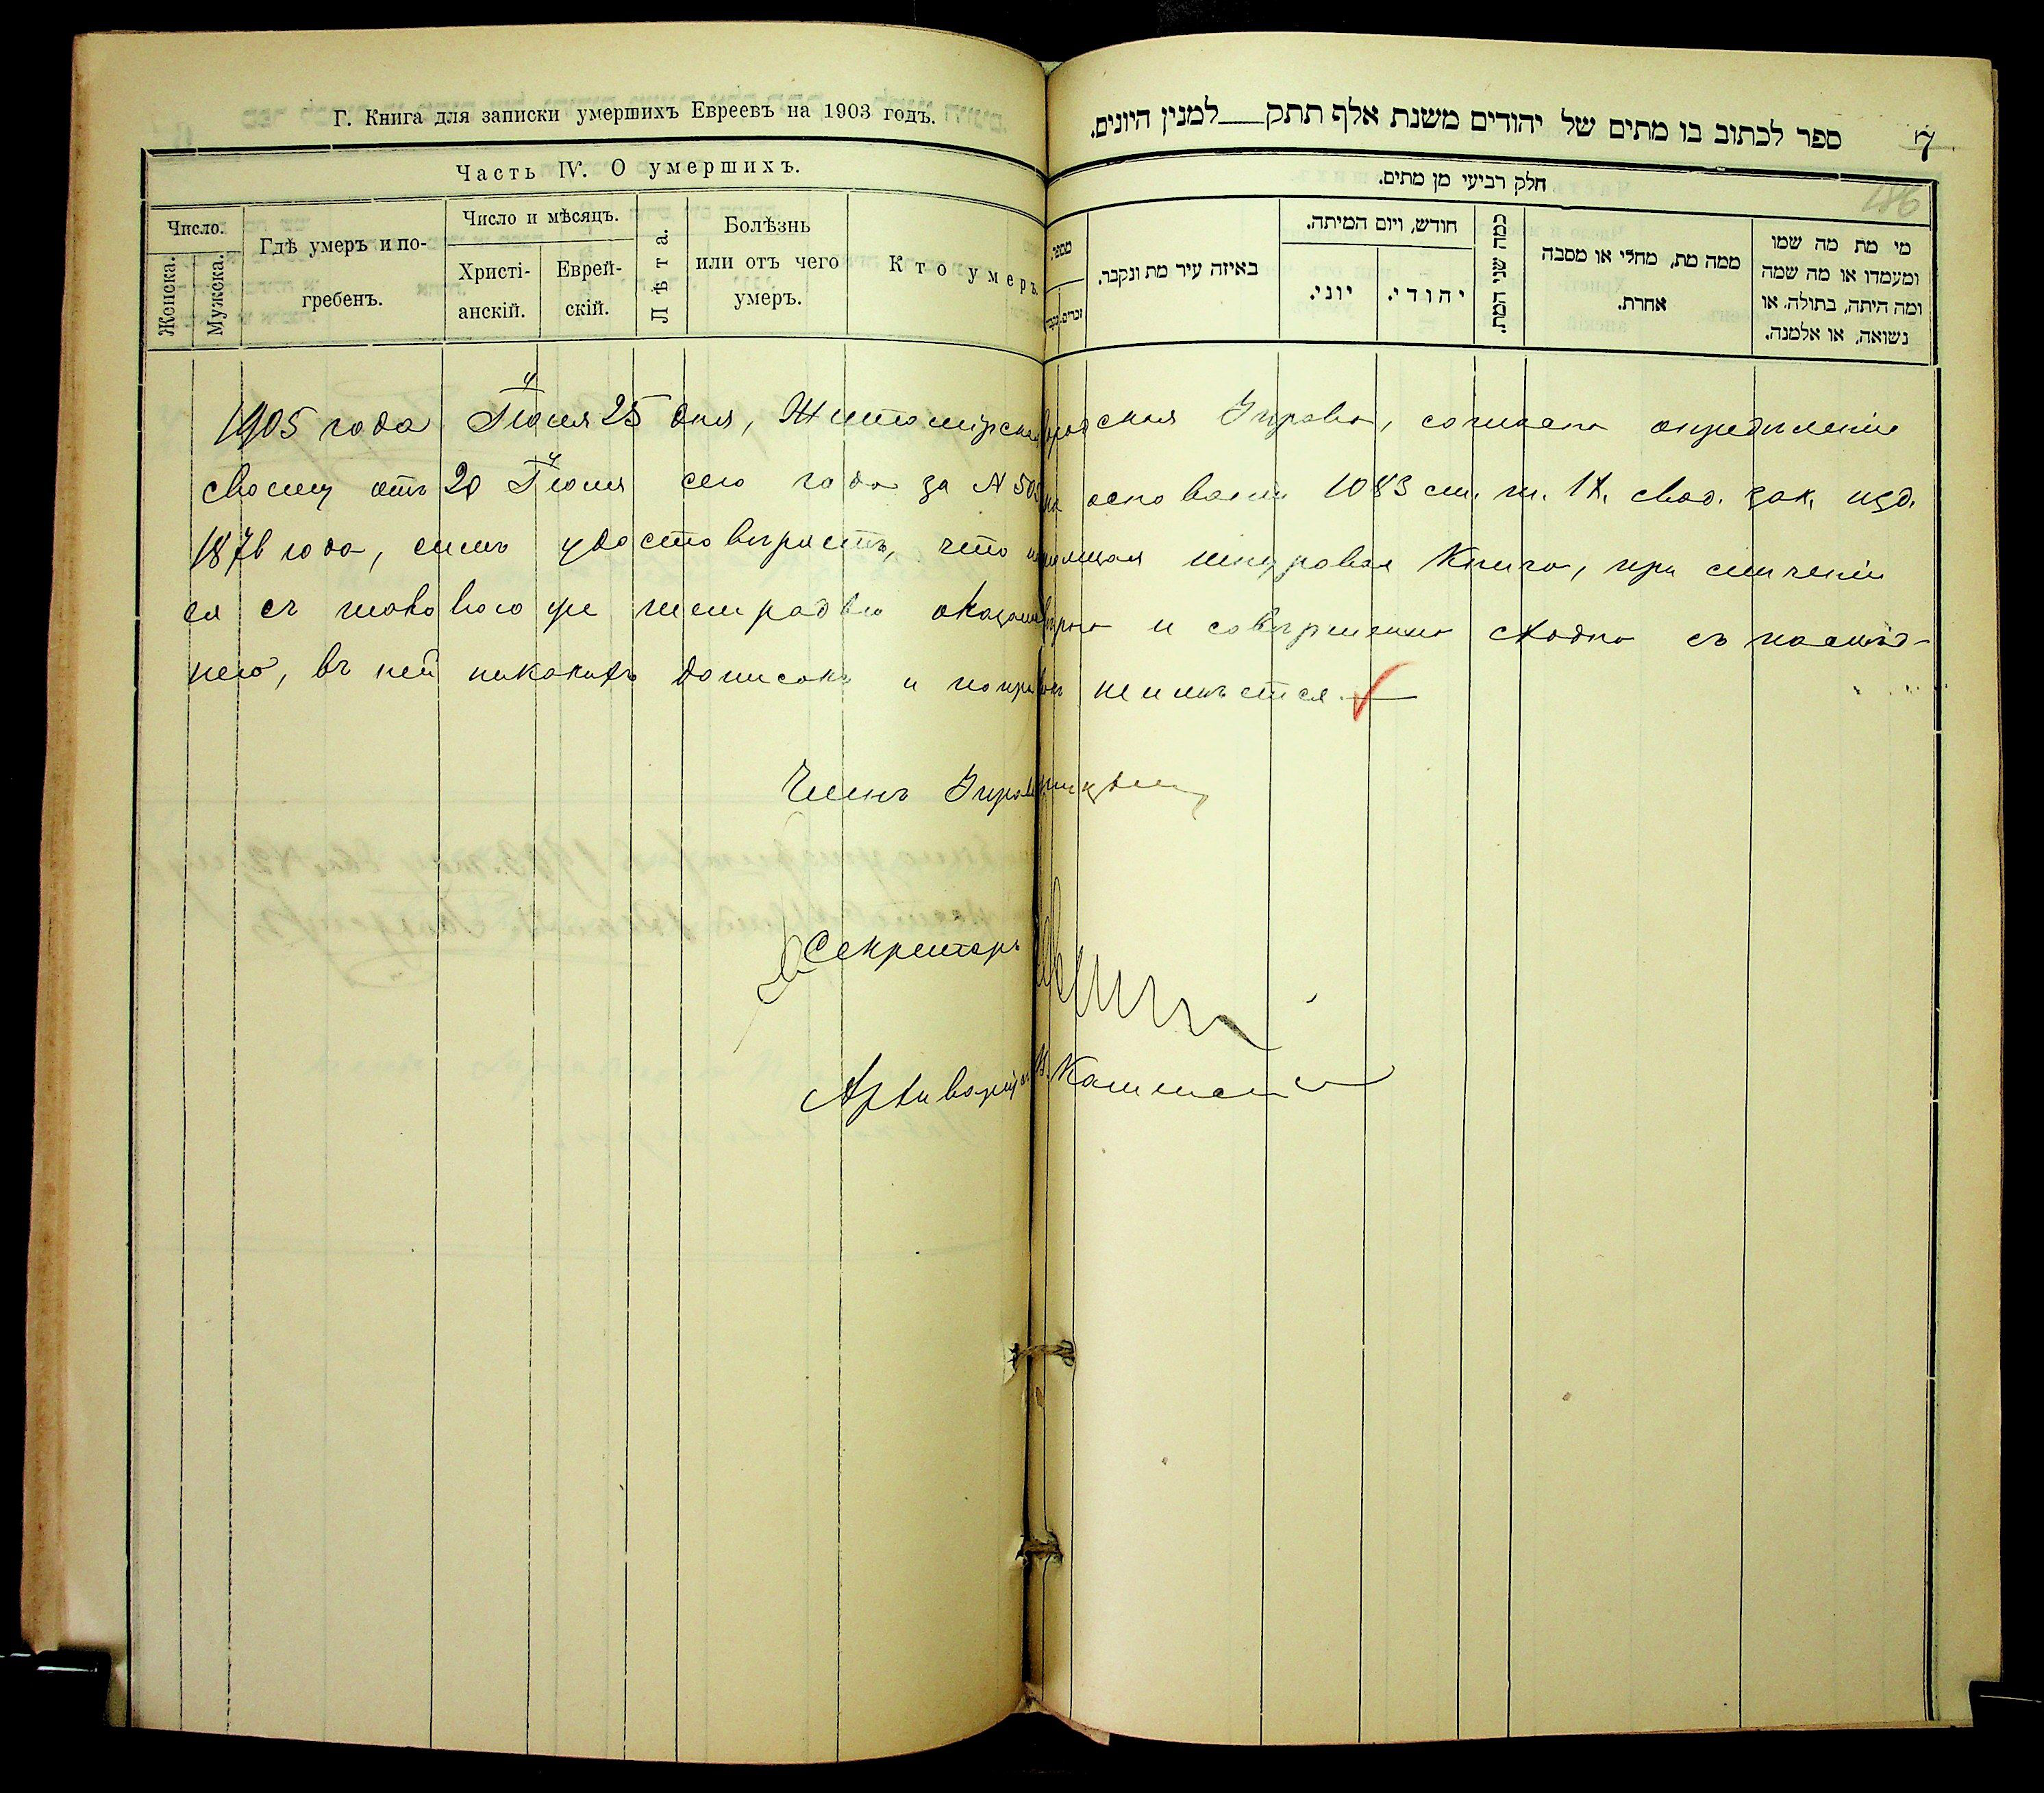 Г. Книга для записки умершихъ Евреевъ на 1903 годъ.
Часть IV. О умершихъ.
Число.
Женска.
Мужска.
Гдѣ умеръ и по-
гребенъ.
Число и мѣсяцъ.
Христі-
анскій.
Еврей-
скій.
Лѣта.
Болѣзнь
или отъ чего
умеръ.
Кто умеръ.
ספר לכתוב בו מתים של יהודים משנת אלף תתק למנין היונים.
7
חלק רביעי מן מתים.
מספר.
זכרים.
באיזה עיר מת ונקבר.
חודש, ויום המיתה.
יוני.
יהודי.
כמה שני המת.
ממה מת, מחלי או מסבה
אחרת.
מי מת מה שמו
ומעמדו או מה שמה
ומה היתה, בתולה, או
נשואה, או אלמנה.
1905 года Іюля 25 дня, Житомірская Городская Управа, согласно опредѣленію
своему отъ 20 Іюля сего года за № на основаніи 1083 ст. т. IX. свод. зак. изд.
1876 года, симъ удостовѣряетъ, что настоящая шнуровая Книга, при сличеніи
ея съ таковою же тетрадью оказалась вѣрна и совершенно сходна съ послѣд-
нею, въ ней никакихъ дописокъ и поправокъ не имѣется.
Членъ Управы
Секретарь
Архиваріусъ